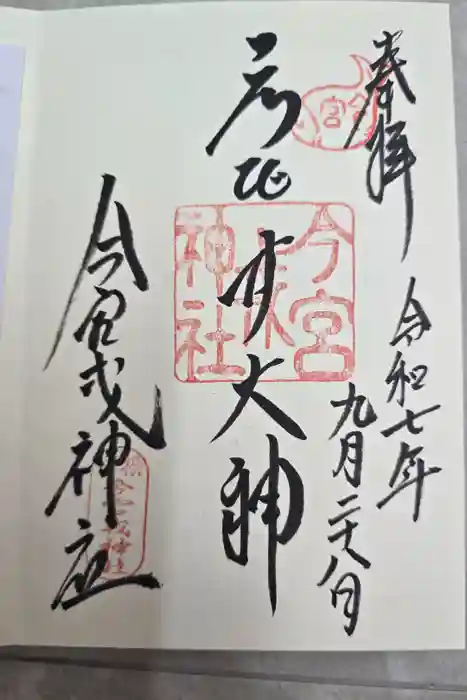 奉拝
令和七年
九月二十八日
恵比寿大神
今宮戎神社
今宮戎神社
今宮戎神社